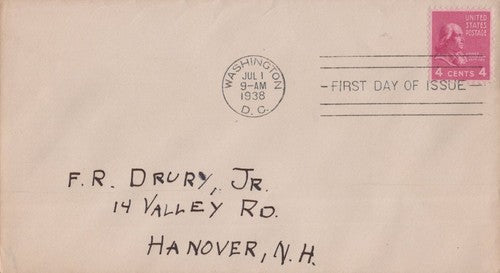 UNITED
STATES
POSTAGE
4 CENTS 4
WASHINGTON
JUL 1
9-AM
1938
D.C.
FIRST DAY OF ISSUE
F.R. DRURY, JR.
14 VALLEY RD.
HANOVER, N.H.